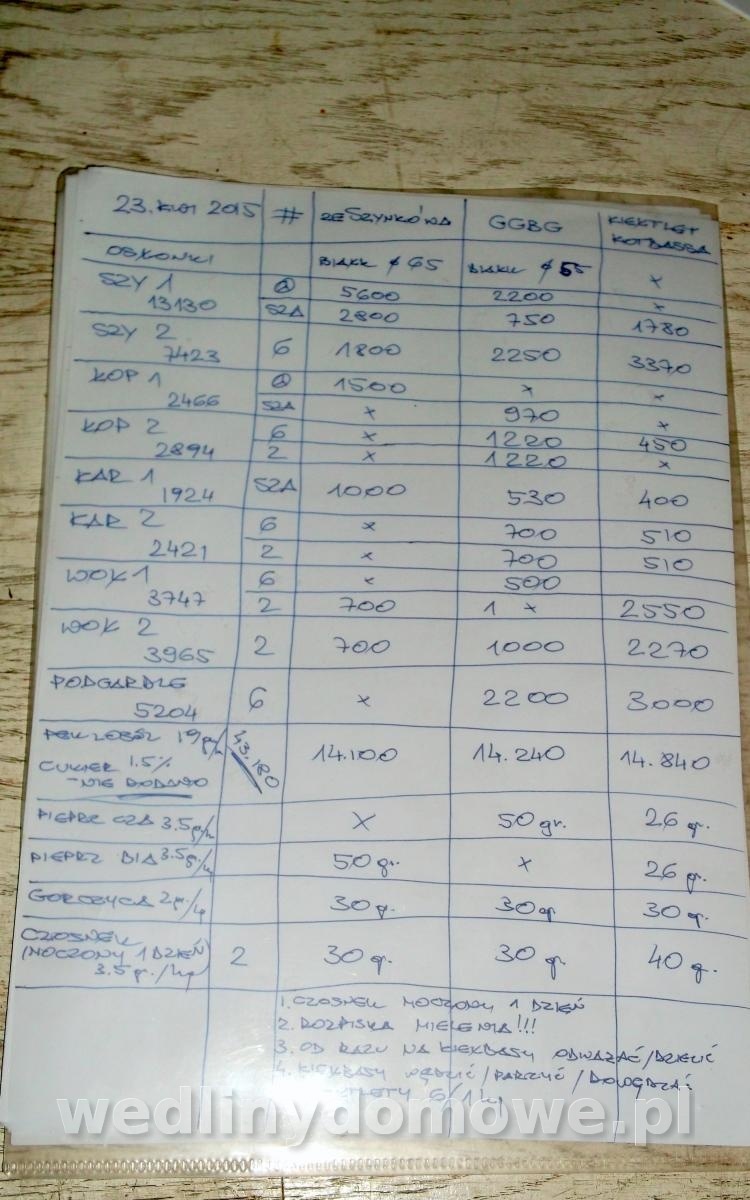 23. KWI 2015 # ZESZYNKÓWA GGBG KIEKTLET KOTBASSA
OSŁONKI BIAŁK ø 65 BIAŁK ø 55 x
SZY 1 5600 2200 x
13130 SZA 2800 750 1780
SZY 2
7423 6 1800 2250 3370
KOP 1 1500 x x
2466 SZA x 970 x
KOP 2 6 x 1220 450
2894 2 x 1220 x
KAR 1
1924 SZA 1000 530 400
KAR 2 6 x 700 510
2421 2 x 700 510
WOK 1 6 x 500
3747 2 700 1 x 2550
WOK 2
3965 2 700 1000 2270
PODGARDLE
5204 6 x 2200 3000
PEKLOSÓL 19 gr/kg 43.180 14.100 14.240 14.840
CUKIER 1.5%
- NIE DODANO
PIEPRZ CZA 3.5 gr/kg X 50 gr. 26 gr.
PIEPRZ BIA 3.5 gr/kg 50 gr. x 26 gr.
GORCZYCA 2 gr/kg 30 gr. 30 gr 30 gr.
CZOSNEK
(MOCZONY 1 DZIEŃ)
3.5 gr./kg 2 30 gr. 30 gr. 40 g.
1. CZOSNEK MOCZONY 1 DZIEŃ
2. ROZPISKA MIELENIA!!!
3. OD RAZU NA KIEKBASY ODWAŻAĆ/DZIELIĆ
4. KIEKBASY WĘDZIĆ/PARZYĆ/DOWĘDZAĆ
6/1 kg
wedlinydomowe.pl